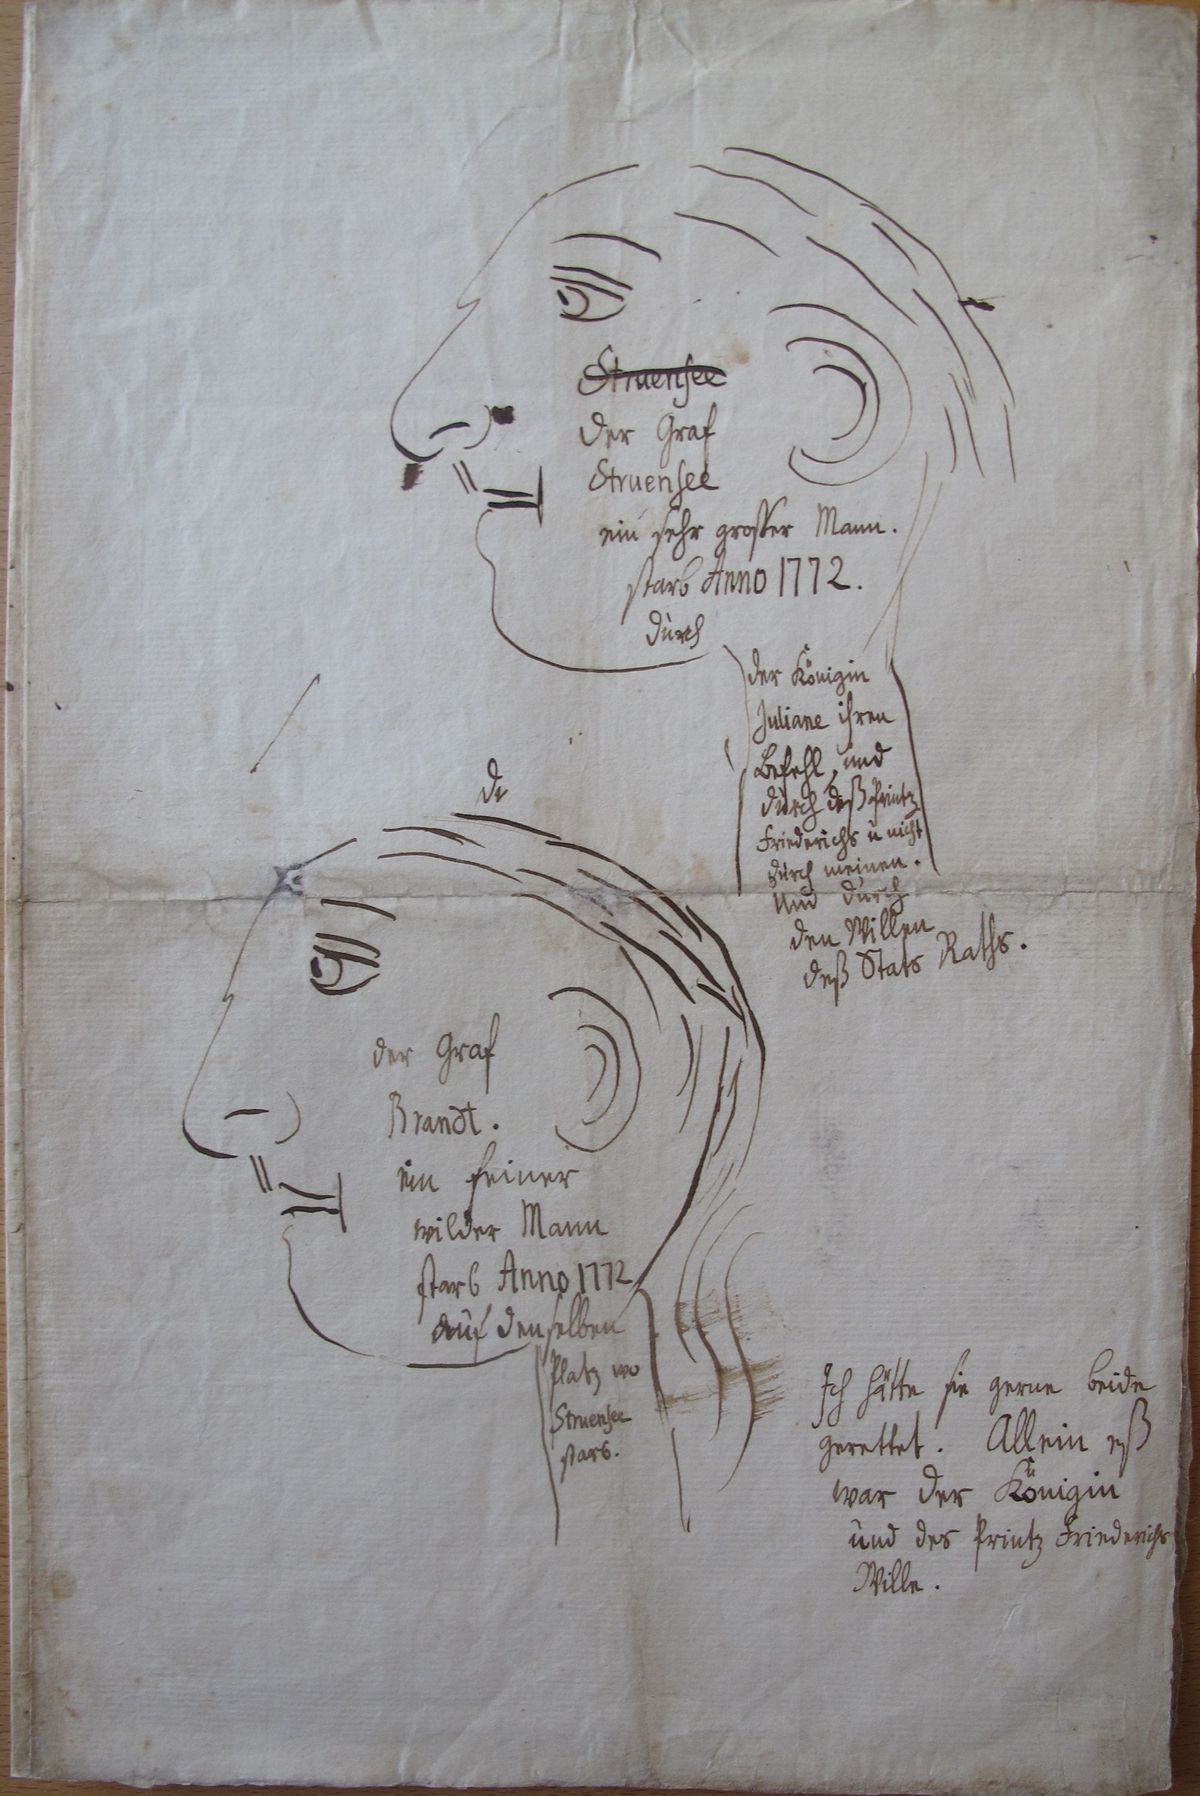 Struensee
der Graf
Struensee
ein sehr grosser Mann.
starb Anno 1772.
durch
der Königin
Juliane ihren
Befehl, und
durch deß Printz
Friederichs ü nicht
durch meinen.
Und durch
den Willen
deß Stats Raths.
de
der Graf
Brandt.
ein feiner
wilder Mann
starb Anno 1772
auf denselben
Platz wo
Struensee
starb.
Ich hätte sie gerne beide
gerettet. Allein eß
war der Königin
und des Printz Friederichs
Wille.